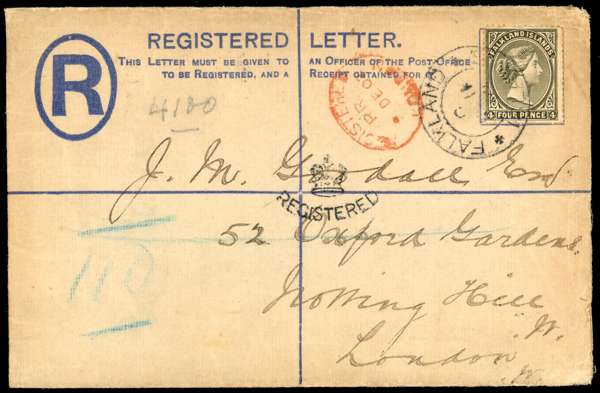 REGISTERED LETTER.
THIS LETTER MUST BE GIVEN TO AN OFFICER OF THE POST OFFICE
TO BE REGISTERED, AND A RECEIPT OBTAINED FOR IT.
R
FALKLAND ISLANDS
4 FOUR PENCE 4
FALKLAND
DE 0
4180
J. M. Goodall Esq
REGISTERED
52 Oxford Gardens
110
Notting Hill
W.
London
W.